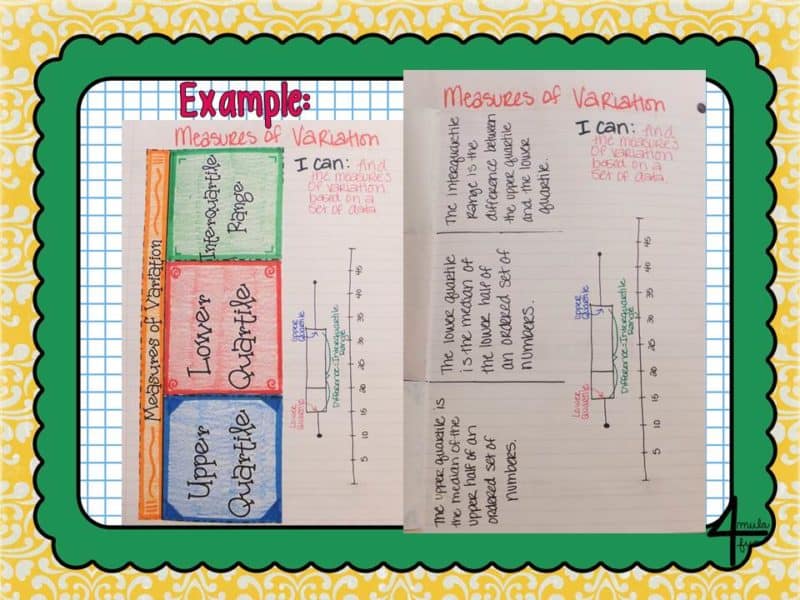 Example:
Measures of Variation
I can: find
the measures
of variation
based on a
set of data.
Measures of Variation
Interquartile
Range
Lower
Quartile
Upper
Quartile
Lower
Quartile
Upper
Quartile
Difference=Interquartile
Range
5 10 15 20 25 30 35 40 45
Measures of Variation
I can: find
the measures
of variation
based on a
set of data.
The interquartile
Range is the
difference between
the upper quartile
and the lower
quartile.
The lower quartile
is the median of
the lower half of
an ordered set of
numbers.
The upper quartile is
the median of the
upper half of an
ordered set of
numbers.
Lower
Quartile
Upper
Quartile
Difference=Interquartile
Range
5 10 15 20 25 30 35 40 45
4
mula
fun